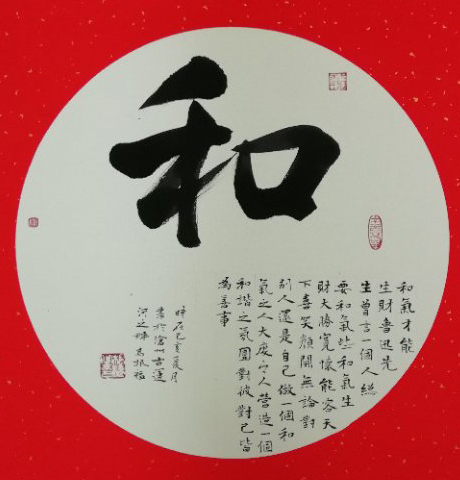 和
和氣才能
生財魯迅先
生曾言一個人總
要和氣些和氣生
財大勝寬懷能容天
下喜笑顏開無論對
別人還是自己做一個和
氣之人大度之人營造一個
和諧之氛圍對彼對己皆
為善事
時在己亥夏月
書於滄州古運
河之畔馬振